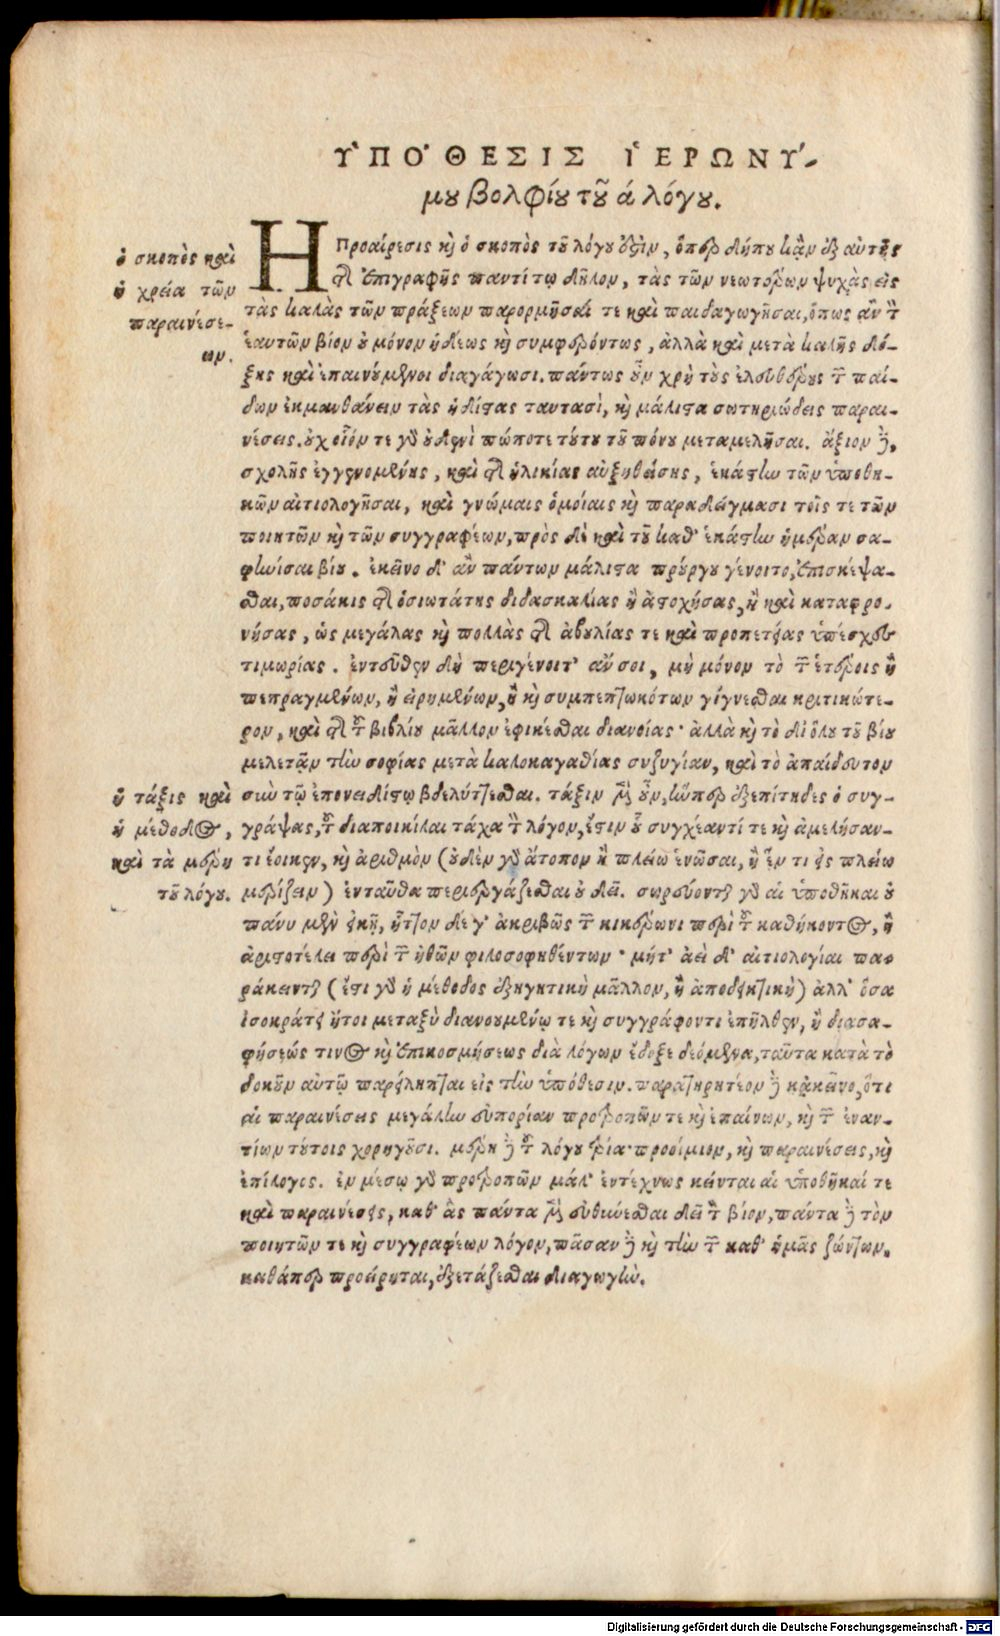 ΥΠΟΘΕΣΙΣ ἹΕΡΩΝΎ-
μου βολφίου τοῦ ά λόγου.
ὁ σκοπὸς καὶ
ἡ χρεία τῶν
παραινέσε-
ων.
Η Προαίρεσις καὶ ὁ σκοπὸς τοῦ λόγου ἐστὶν, ὅπερ δήπου κἂν ἐξ αὐτῆς
τῆς ἐπιγραφῆς παντί τῳ δῆλον, τὰς τῶν νεωτέρων ψυχὰς εἰς
τὰς καλὰς τῶν πράξεων παρορμῆσαί τε καὶ παιδαγωγῆσαι, ὅπως ἂν τὸν
ἑαυτῶν βίον οὐ μόνον ἡδέως καὶ συμφερόντως, ἀλλὰ καὶ μετὰ καλῆς δό-
ξης καὶ ἐπαινούμενοι διαγάγωσι. πάντως οὖν χρὴ τοὺς ἐλευθέρους τῶν παί-
δων ἐκμανθάνειν τὰς ἡδίστας ταυτασὶ, καὶ μάλιστα σωτηριώδεις παραι-
νέσεις. οὐχ οἷόν τε γὰρ οὐδενὶ πώποτε τούτου τοῦ πόνου μεταμελῆσαι. ἄξιον δὲ,
σχολῆς ἐγγενομένης, καὶ τῆς ἡλικίας αὐξηθείσης, ἑκάστην τῶν ὑποθη-
κῶν αἰτιολογῆσαι, καὶ γνώμαις ὁμοίαις καὶ παραδείγμασι τοῖς τε τῶν
ποιητῶν καὶ τῶν συγγραφέων, πρὸς δὲ καὶ τοῦ καθ' ἑκάστην ἡμέραν σα-
φηνίσαι βίου. ἐκεῖνο δ' ἂν πάντων μάλιστα προὔργου γένοιτο, ἐπισκέψα-
σθαι, ποσάκις τῆς ὁσιωτάτης διδασκαλίας ἢ ἀστοχήσας, ἢ καὶ καταφρο-
νήσας, ὡς μεγάλας καὶ πολλὰς τῆς ἀβουλίας τε καὶ προπετείας ὑπέσχου
τιμωρίας. ἐντεῦθεν δὴ περιγένοιτ' ἄν σοι, μὴ μόνον τὸ τῶν ἑτέροις ἢ
πεπραγμένων, ἢ εἰρημένων, ἢ καὶ συμπεπτωκότων γίγνεσθαι κριτικώτε-
ρον, καὶ τῆς τοῦ βιβλίου μᾶλλον ἐφικέσθαι διανοίας· ἀλλὰ καὶ τὸ δι' ὅλου τοῦ βίου
μελετᾷν τὴν σοφίας μετὰ καλοκαγαθίας συζυγίαν, καὶ τὸ ἀπαίδευτον
ἡ τάξις καὶ
ἡ μέθοδος,
καὶ τὰ μέρη
τοῦ λόγου.
σὺν τῷ ἐπονειδίστῳ βδελύττεσθαι. τάξιν μὲν οὖν, ᾗπερ ἐξεπίτηδες ὁ συγ-
γράψας, τοῦ διαποικίλαι τάχα τὸν λόγον, ἔστιν οὗ συγχέαντί τε καὶ ἀμελήσαν-
τι ἔοικεν, καὶ ἀριθμὸν (οὐδὲν γὰρ ἄτοπον ἢ πλείω ἑνῶσαι, ἢ ἕν τι εἰς πλείω
μερίζειν) ἐνταῦθα περιεργάζεσθαι οὐ δεῖ. σωρεύονται γὰρ αἱ ὑποθῆκαι οὐ
πάνυ μὲν εἰκῆ, ἧττον δέ γ' ἀκριβῶς τῶν κικέρωνι περὶ τοῦ καθήκοντος, ἢ
ἀριστοτέλει περὶ τῶν ἠθῶν φιλοσοφηθέντων· μήτ' ἀεὶ δ' αἰτιολογίαι πα-
ράκεινται (ἔστι γὰρ ἡ μέθοδος ἐξηγητικὴ μᾶλλον, ἢ ἀποδεικτικὴ) ἀλλ' ὅσα
ἰσοκράτει ἤτοι μεταξὺ διανουμένῳ τε καὶ συγγράφοντι ἐπῆλθεν, ἢ διασα-
φήσεώς τινος καὶ ἐπικοσμήσεως διὰ λόγων ἔδοξε δεόμενα, ταῦτα κατὰ τὸ
δοκοῦν αὐτῷ παρείληπται εἰς τὴν ὑπόθεσιν. παρατηρητέον δὲ κᾀκεῖνο, ὅτι
αἱ παραινέσεις μεγάλην εὐπορίαν προτροπῶν τε καὶ ἐπαίνων, καὶ τῶν ἐναν-
τίων τούτοις χορηγοῦσι. μέρη δὲ τοῦ λόγου τρία· προοίμιον, καὶ παραινέσεις, καὶ
ἐπίλογος. ἐν μέσῳ γὰρ προτροπῶν μάλ' ἐντέχνως κεῖνται αἱ ὑποθῆκαί τε
καὶ παραινέσεις, καθ' ἃς πάντα μὲν εὐθύνεσθαι δεῖ τὸν βίον, πάντα δὲ τὸν
ποιητῶν τε καὶ συγγραφέων λόγον, πᾶσαν δὲ καὶ τὴν τῶν καθ' ἡμᾶς ζώντων,
καθάπερ προείρηται, ἐξετάζεσθαι διαγωγήν.
Digitalisierung gefördert durch die Deutsche Forschungsgemeinschaft - DFG